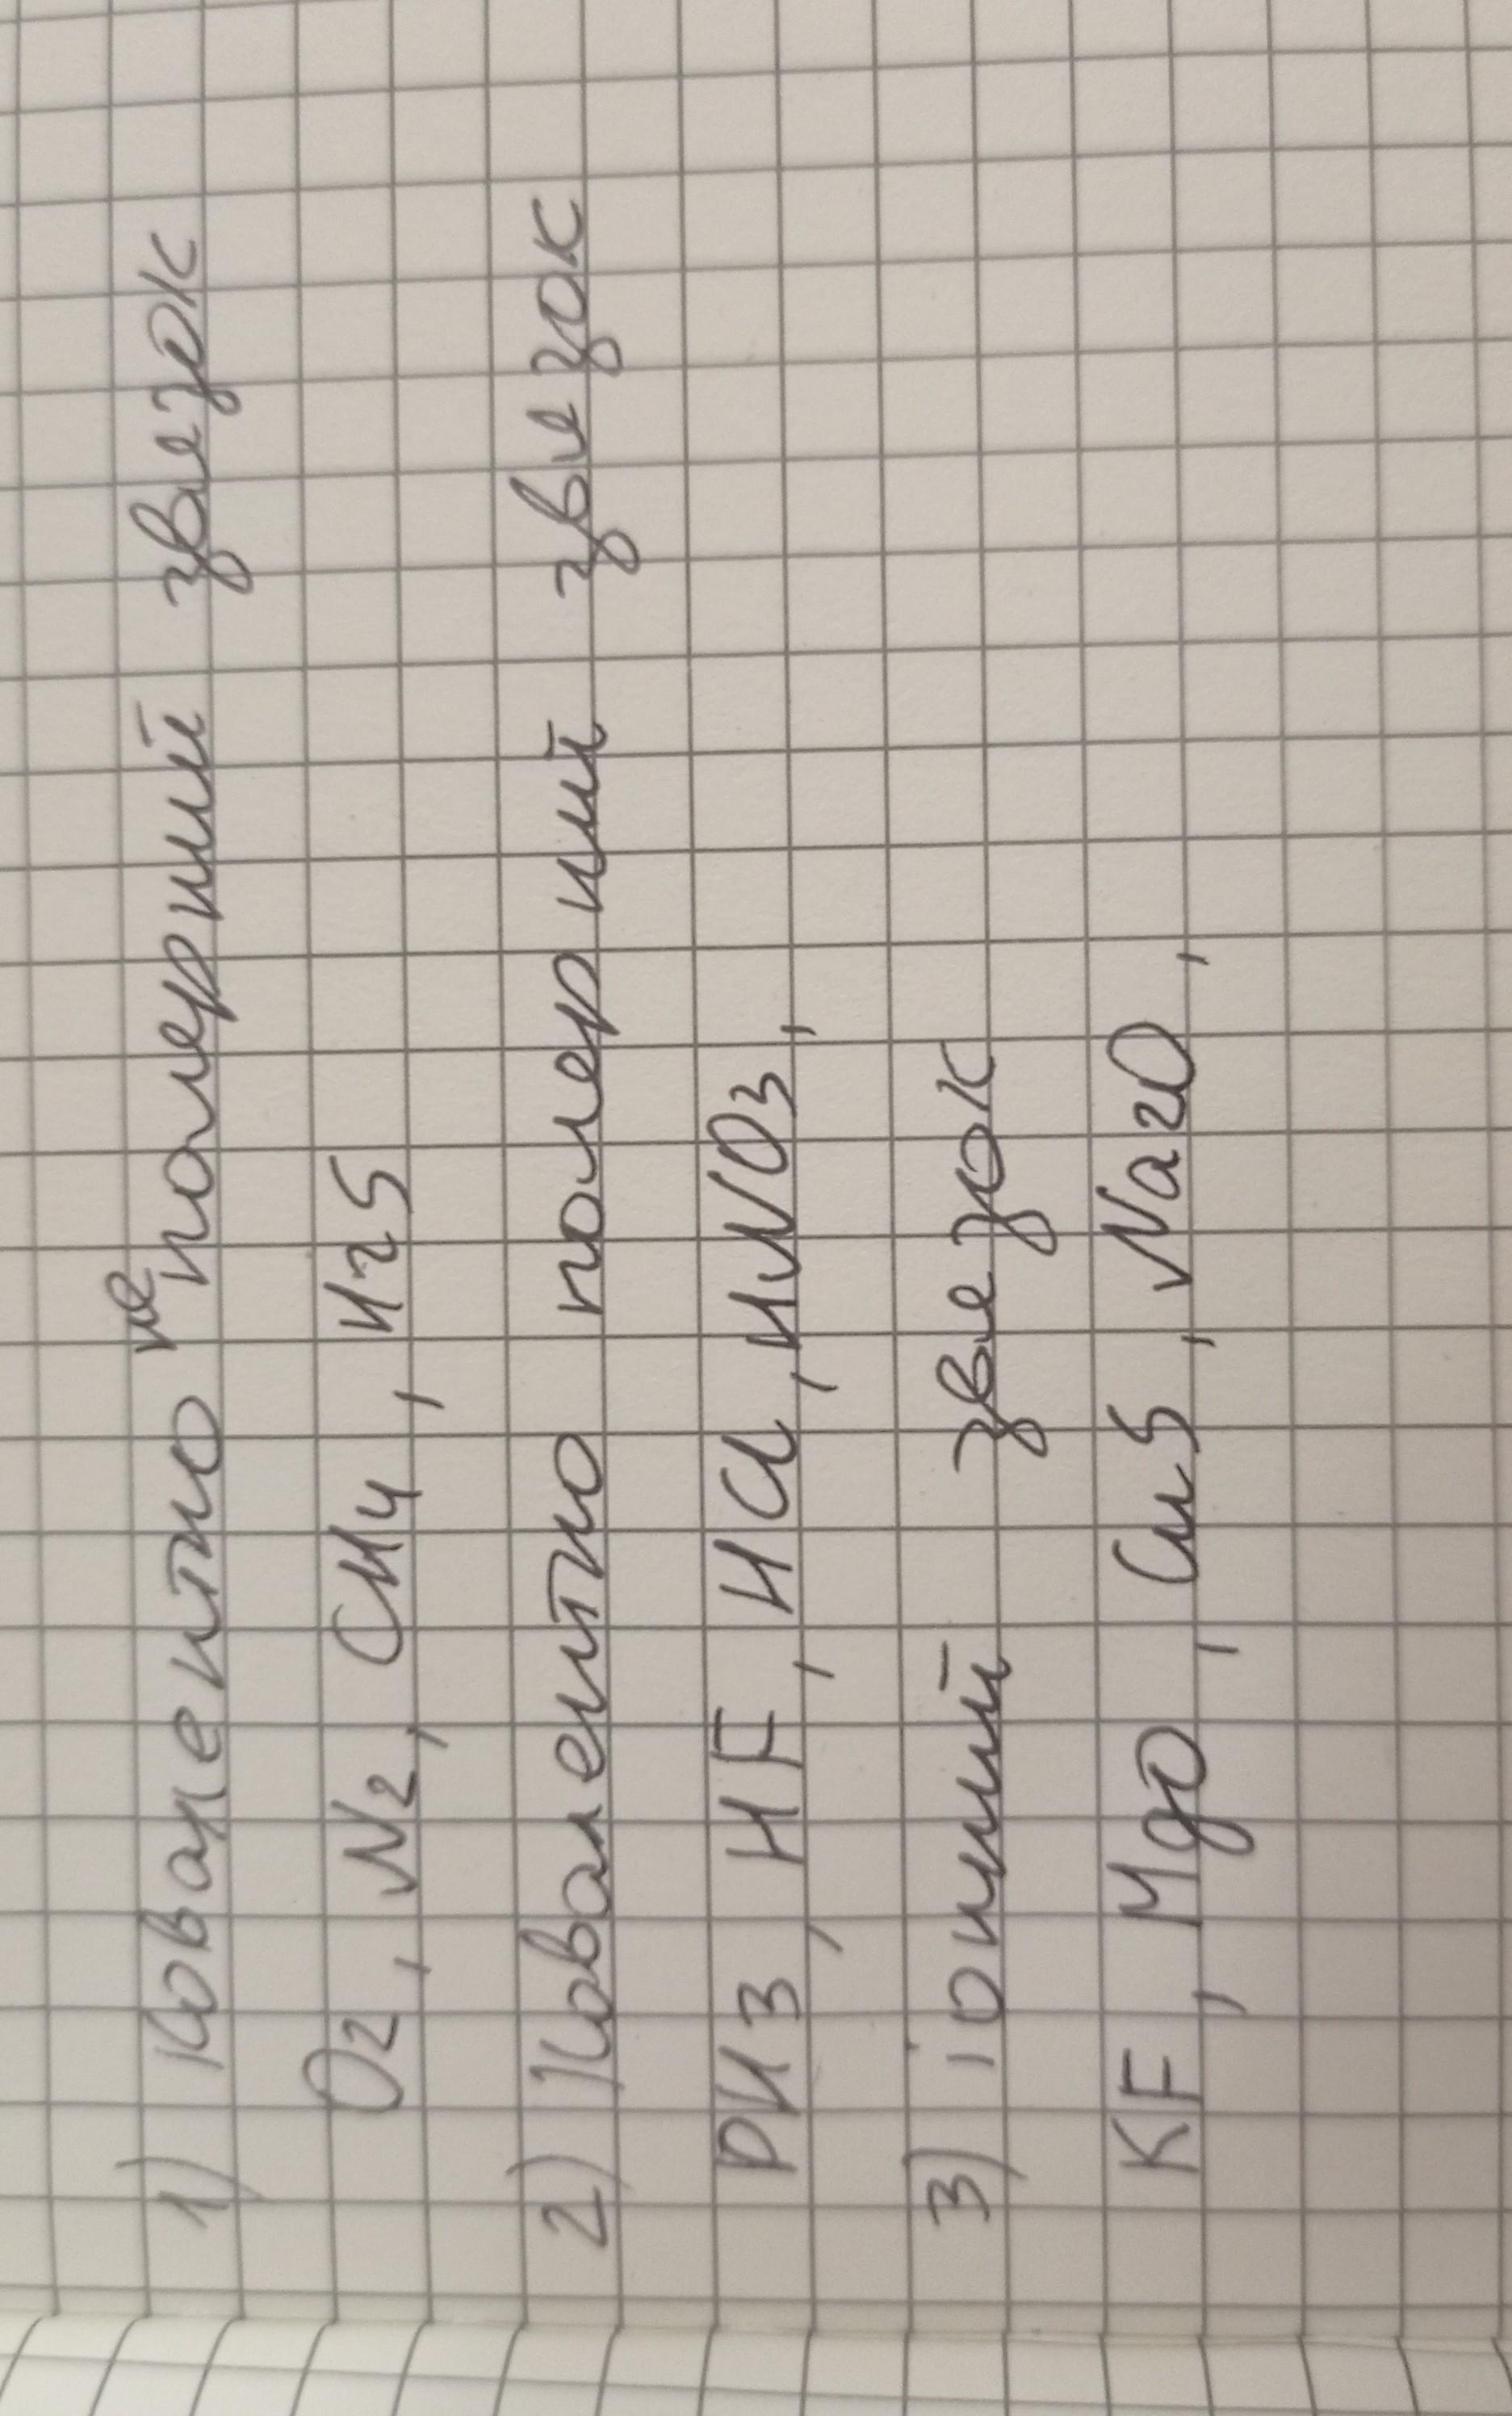 1) Ковалентно не полерний звезок
O2, N2, CH4, H2S
2) Ковалентно полерний звезок
PH3, HF, HCl, HNO3,
3) іонний звезок
KF, MgO, CuS, Na2O,